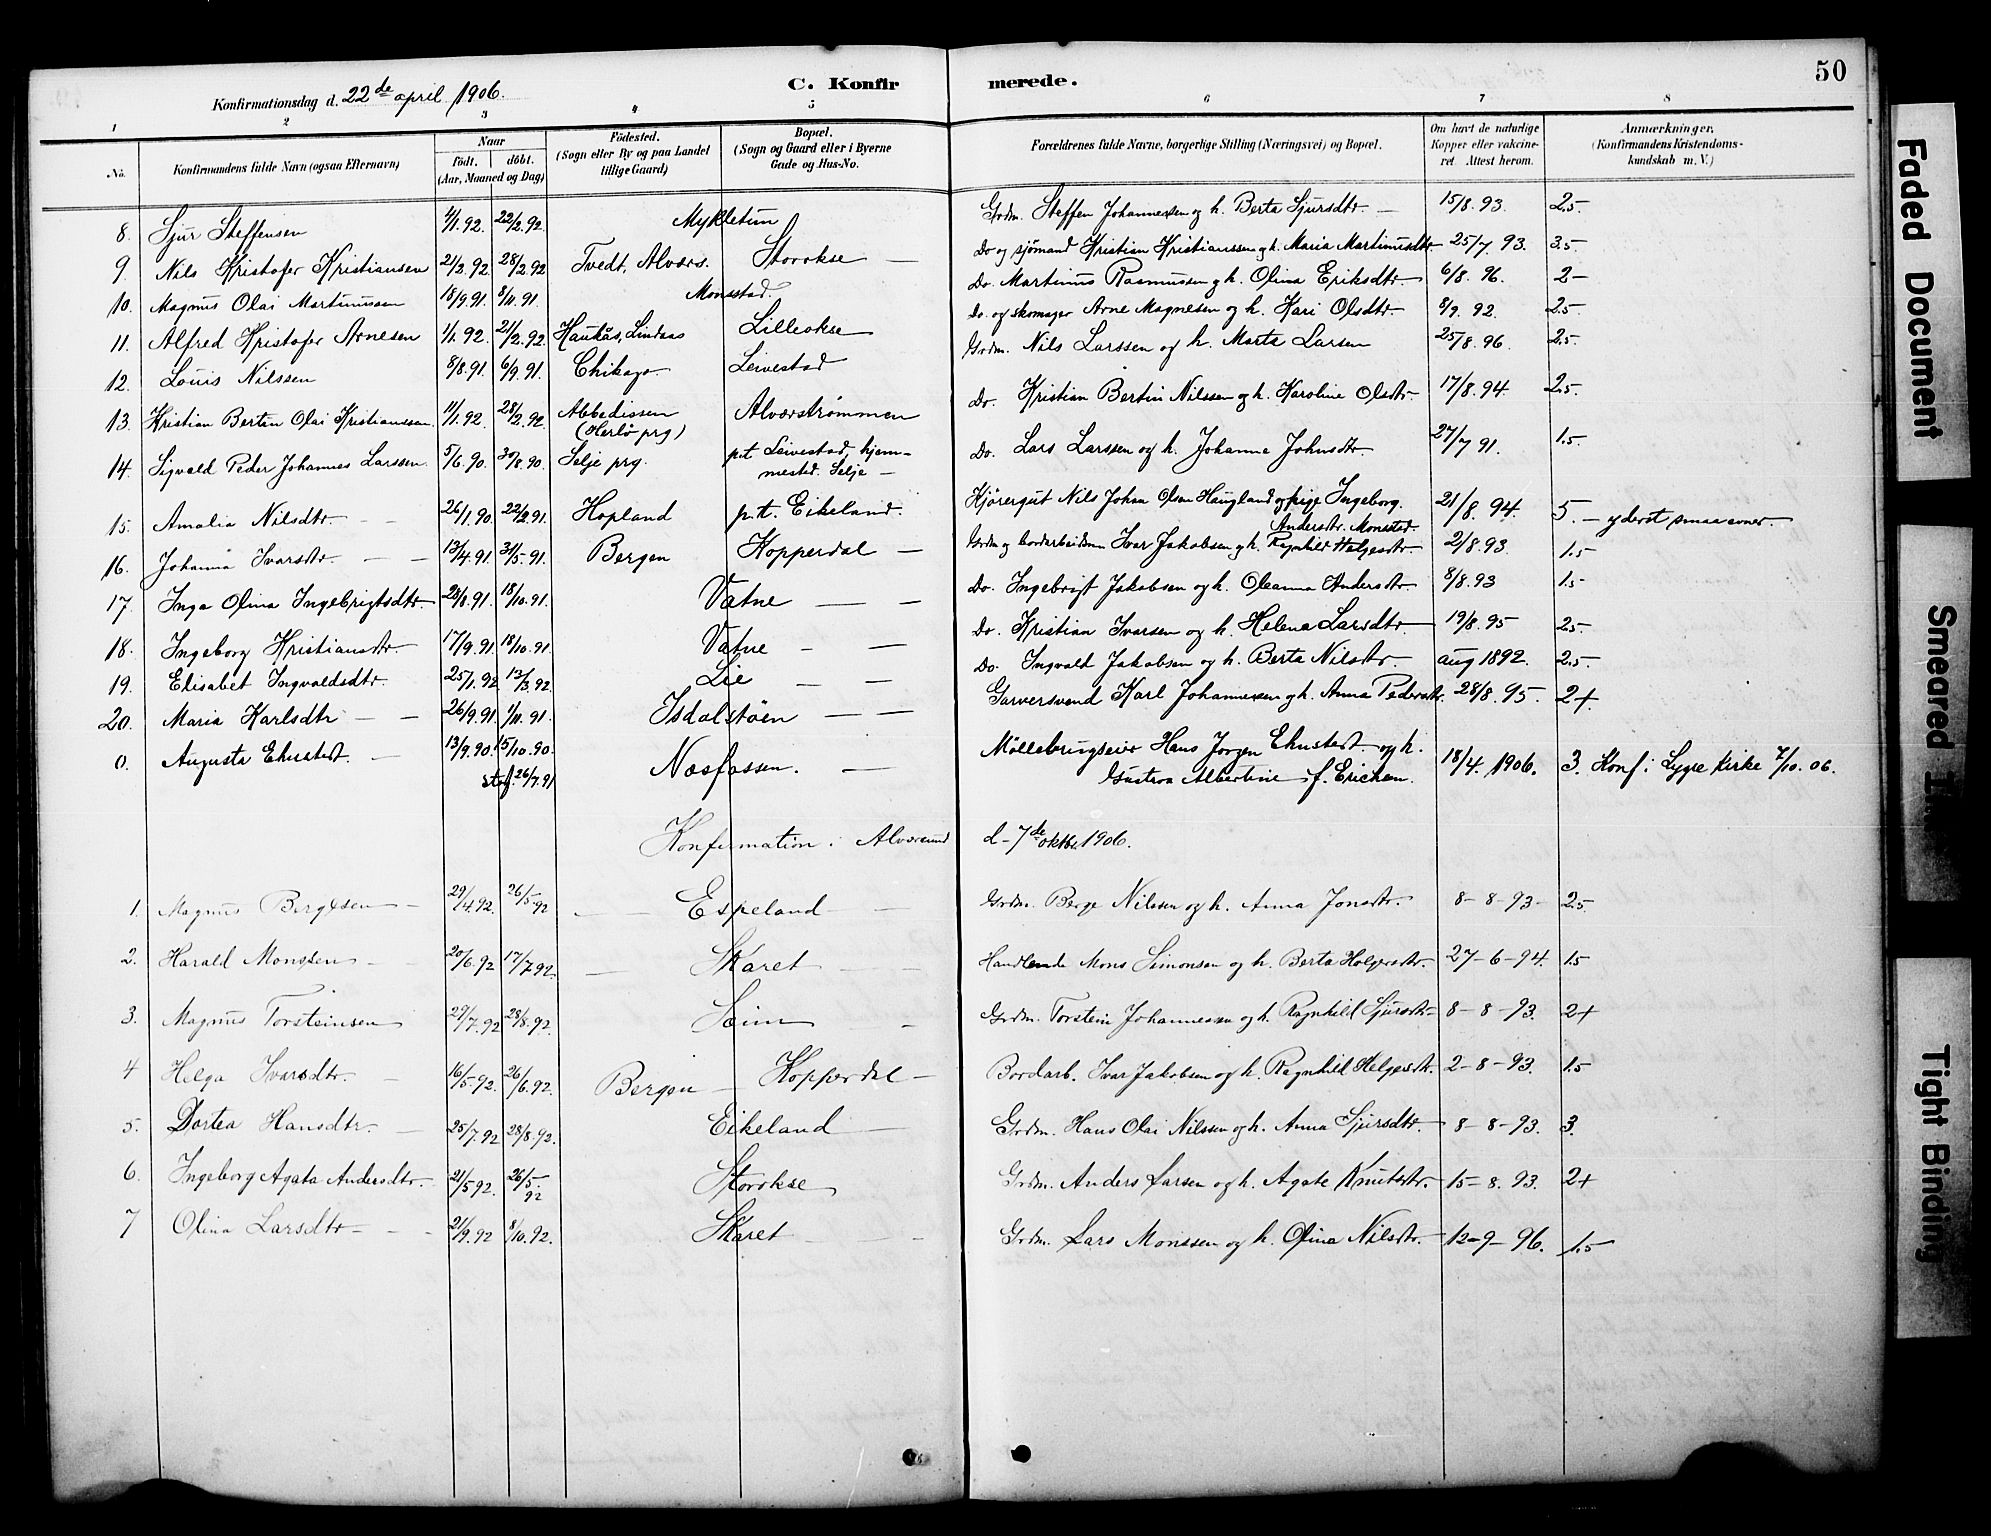 50
Konfirmationsdag d. 22de april 1906.
C. Konfirmerede.
1 2 3 4 5 6 7 8
No.
Konfirmandens fulde Navn (ogsaa Efternavn)
Naar
födt. döbt.
(Aar, Maaned og Dag)
Födested.
(Sogn eller By og paa Landet
tillige Gaard)
Bopæl.
(Sogn og Gaard eller i Byerne
Gade og Hus-No.
Forældrenes fulde Navne, borgerlige Stilling (Næringsvei) og Bopæl.
Om havt de naturlige
Kopper eller vakcine-
ret. Attest herom.
Anmærkninger.
(Konfirmandens Kristendoms-
kundskab m. V.)
8. Sjur Steffensen 4/1.92. 22/2.92. Mykletun Grdm. Steffen Johannessen og h. Berta Sjursdtr. — 15/8.93. 2.5-
9. Nils Kristofer Kristiansen 21/2.92 28/2.92 Tvedt, Alvers. Storokse — Do og sjömand Kristian Kristianssen og h. Maria Martinusdtr 25/7 93. 3.5-
10. Magnus Olai Martinussen 18/9.91. 8/11.91. Monsstad. Do. Martinus Rasmussen og h. Olina Eriksdtr. 6/8. 96. 2-
11. Alfred Kristofer Arnesen 1/1.92. 21/2.92. Haukås, Lindaas Lilleokse Do. og skomager Arne Magnesen og h. Kari Olsdtr. 8/9. 92. 2.5-
12. Louis Nilssen 8/8.91. 6/9.91. Chikago. Leivestad Grdm. Nils Larssen og h. Marta Larsen 25/8.96. 2.5-
13. Kristian Bertin Olai Kristianssen. 11/1.92 28/2.92. Abbedissen Alverströmmen Do. Kristian Bertin Nilssen og h. Karoline Olsdtr. 17/8.94. 2.5-
(Herlö prg)
14. Sigvald Peder Johannes Larssen. 5/6.90. 30/8.90. Selje prg. p.t Leivestad, hjem- Do. Lars Larssen og h. Johanna Johnsdtr. 27/7 91. 1.5-
mested. Selje —
15. Amalia Nilsdtr. — — 26/1.90. 22/2.91. Hopland p.t. Eikeland. Kjørergut Nils Johan Olsen Haugland og pige Ingeborg 21/8. 94. 5. — yderst smaa evner.
Andersdtr. Monsstad.
16. Johanna Ivarsdtr. — — 13/4.91. 31/5.91. Bergen Kopperdal — Grdm og bordarbeidsm Ivar Jakobsen og h. Ragnhild Helgesdtr. — 2/8.93. 1.5-
17. Inga Olina Ingebrigtsdtr. 18/10.91. Vatne — — Do. Ingebrigt Jakobsen og h. Oleanna Andersdtr. 8/8.93 1.5-
18. Ingeborg Kristiansdtr. 17/9.91. 18/10.91. Vatne — — Do. Kristian Ivarsen og h. Helena Larsdtr. — 19/8.95 2.5-
19. Elisabet Ingvaldsdtr. 25/1.92 13/3.92 Lie — — Do. Ingvald Jakobsen og h. Berta Nilsdtr. aug 1892. 2.5-
20. Maria Karlsdtr — — 26/9.91. 1/11.91. Isdalstöen — — Garversvend Karl Johannessen og h. Anna Pedersdtr. 28/8.95. 2+
0. Augusta Ehnstedt. — 13/9.90. 15/10.90. Nosfossen. — Möllebrugseier Hans Jorgen Ehnstedt og h. 18/4. 1906. 3. Konf i Lygre kirke 7/10.06.
stf. 26/7.91 Gustava Albertine f. Ericksen.
Konfirmation i Alversund d. 7de oktbr. 1906.
1. Magnus Bergesen — 29/4.92. 26/5 92 — — Espeland — Grdm. Berge Nilssen og h. Anna Jonsdtr. 8-8-93- 2.5-
2. Harald Monssen — 20/6.92 17/7.92 — Skaret — Handlende Mons Simonsen og h. Berta Helgesdtr. 27-6-94. 1.5
3. Magnus Torsteinsen 29/7.92 28/8.92. Seim — Grdm. Torstein Johannessen og h. Ragnhild Sjursdtr — 8-8-93. 2+
4 Helga Ivarsdtr. — 16/5.92. 26/6.92. Bergen — Kopperdal — Bordarb. Ivar Jakobsen og h. Ragnhild Helgesdtr. 2-8-93. 1.5
5. Dortea Hansdtr. — 25/7.92 28/8.92. Eikeland — Grdm. Hans Olai Nilssen og h. Anna Sjursdtr. — 8-8-93. 3.
6. Ingeborg Agata Andersdtr. 21/5.92. 26/5- 92 Storokse Grdm. Anders Larsen og h. Agate Knutsdtr. — 15-8.93. 2+
7 Olina Larsdtr — — 21/9.92 8/10.92. Skaret — — Grdm. Lars Monssen og h. Olina Nilsdtr. — 12-9-96. 1.5-
Faded Document
Smeared
Tight Binding